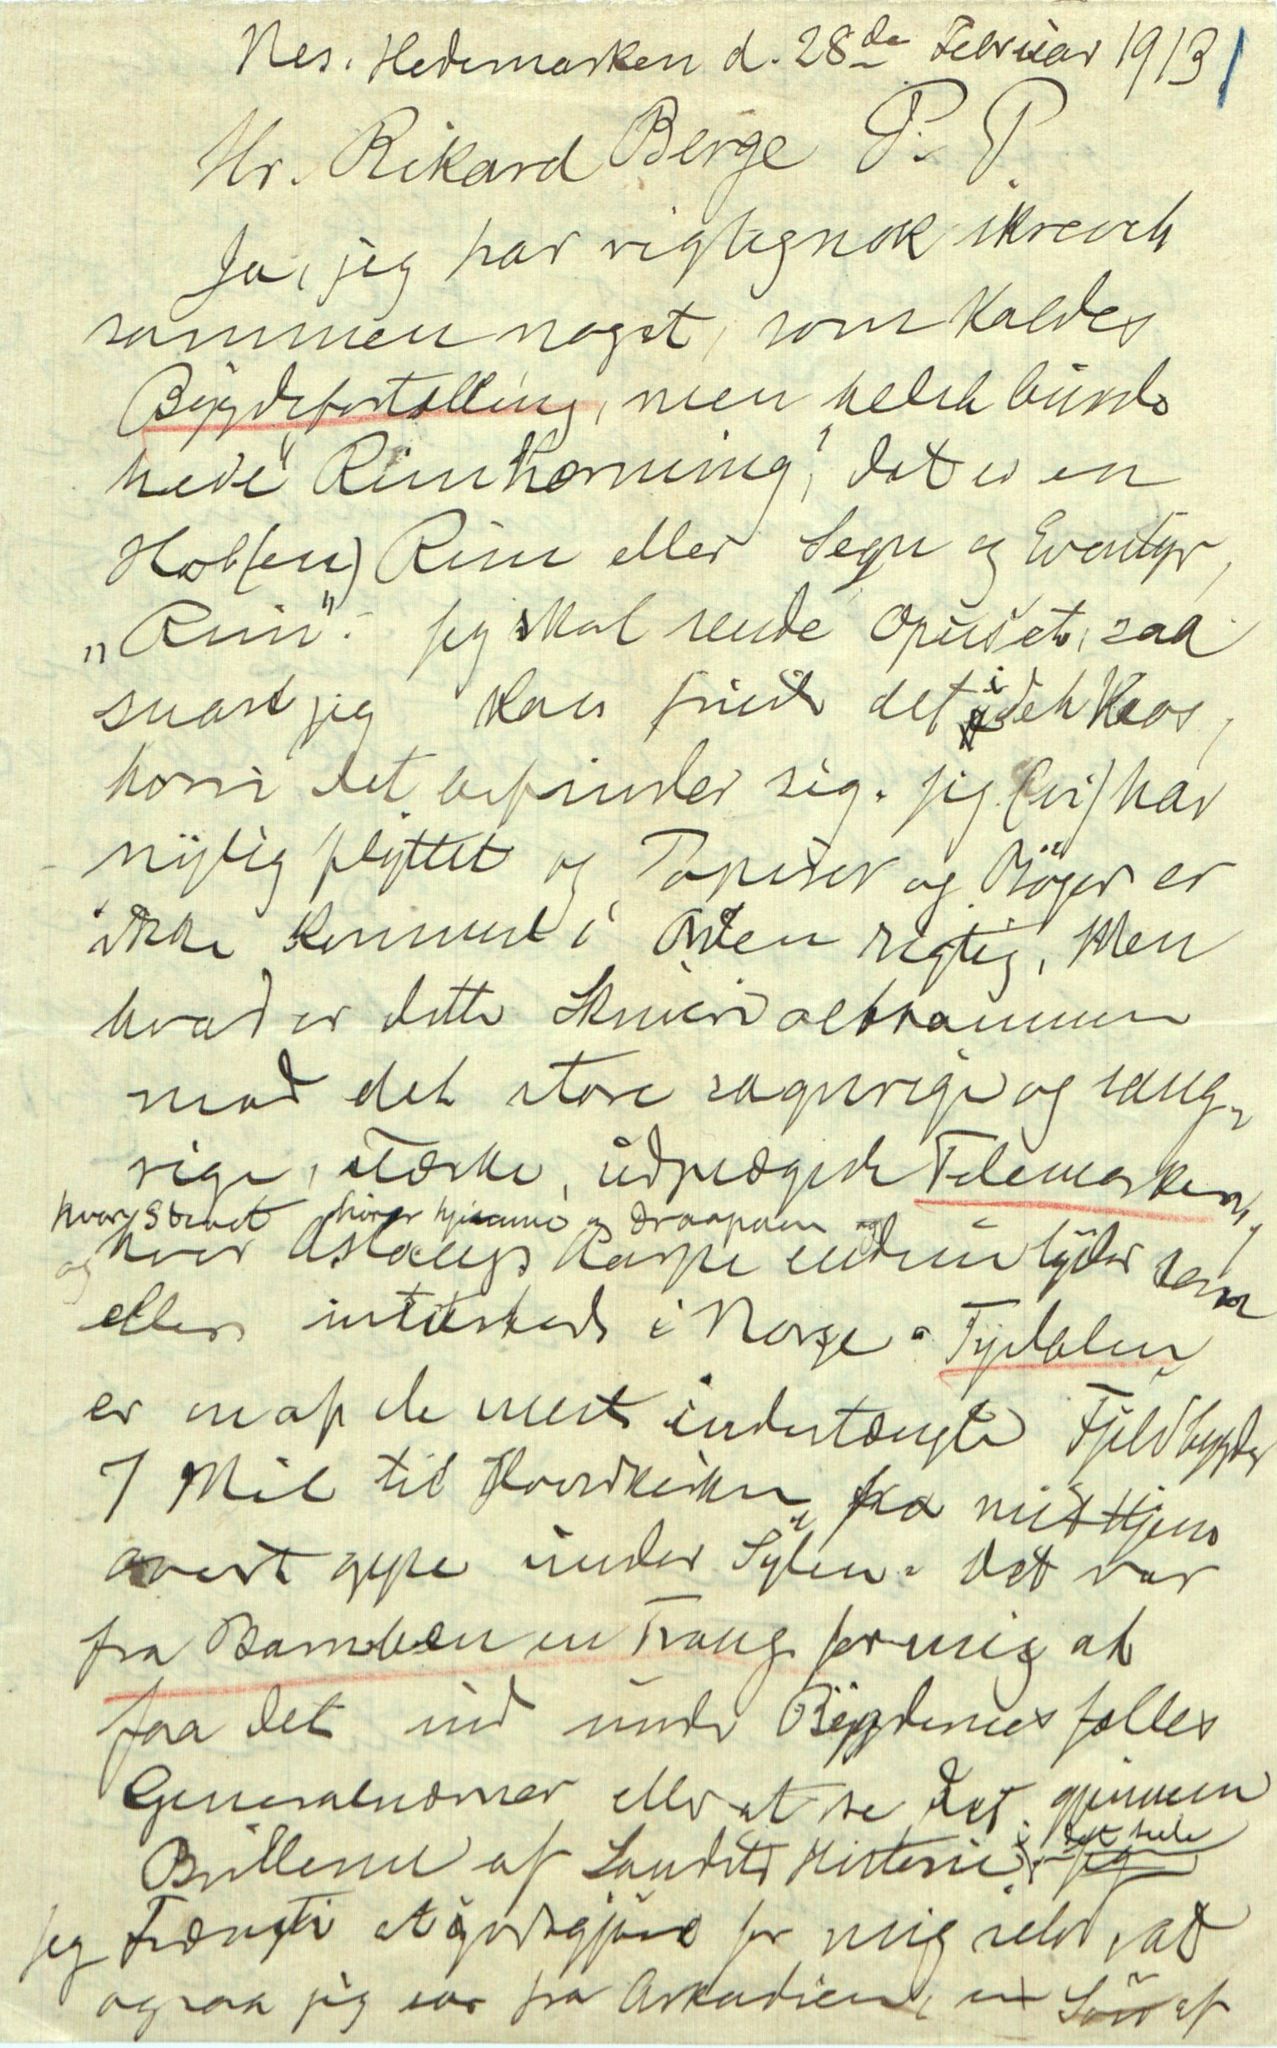 Nes. Hedemarken d. 28de Februar 1913
Hr. Rikard Berge P. P.
Ja, jeg har rigtignok skrevet
sammen noget, som kaldes
Bygdefortælling, men helst burde
hede "Rimhorning", det er en
Hob (en) Rim eller Segn og Eventyr,
"Rim". Jeg skal sende Opuset, saa
snart jeg kan finde det i det Kaos,
hvori det befinder sig. Jeg (vi) har
nylig flyttet og Papirer og Bøger er
ikke kommet i Orden rigtig. Men
hvad er dette Skriveri altsammen
mod det store sagnrige og sang-
rige, stærke, udprægede Telemarken,
hvor Stevet hører hjemme og Draapaen og
og hvor Aslaugs Harpe endnu lyder som
ellers intetsteds i Norge. Tydalen
er en af de mest indestængte Fjeldbygder
7 Mil til Hovedkirken fra mit Hjem
øverst oppe under Sylen. Det var
fra Barnben en Trang for mig at
faa det ind under Bygdernes fælles
Generalnævner eller at se det gjennem
Brillerne af Landets Historie, det hele
jeg trængte at godtgjøre for mig selv, at
ogsaa jeg var fra Arkadien, en Søn af